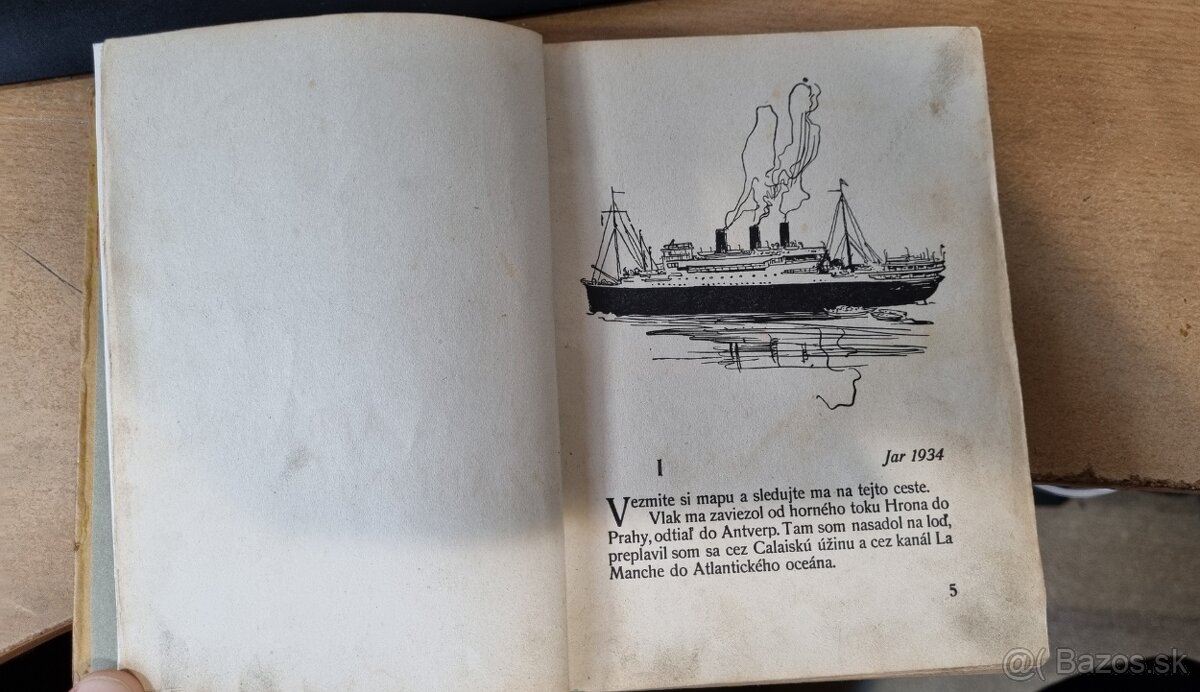 I
Jar 1934
Vezmite si mapu a sledujte ma na tejto ceste.
Vlak ma zaviezol od horného toku Hrona do
Prahy, odtiaľ do Antverp. Tam som nasadol na loď,
preplavil som sa cez Calaiskú úžinu a cez kanál La
Manche do Atlantického oceána.
5
@( Bazos.sk